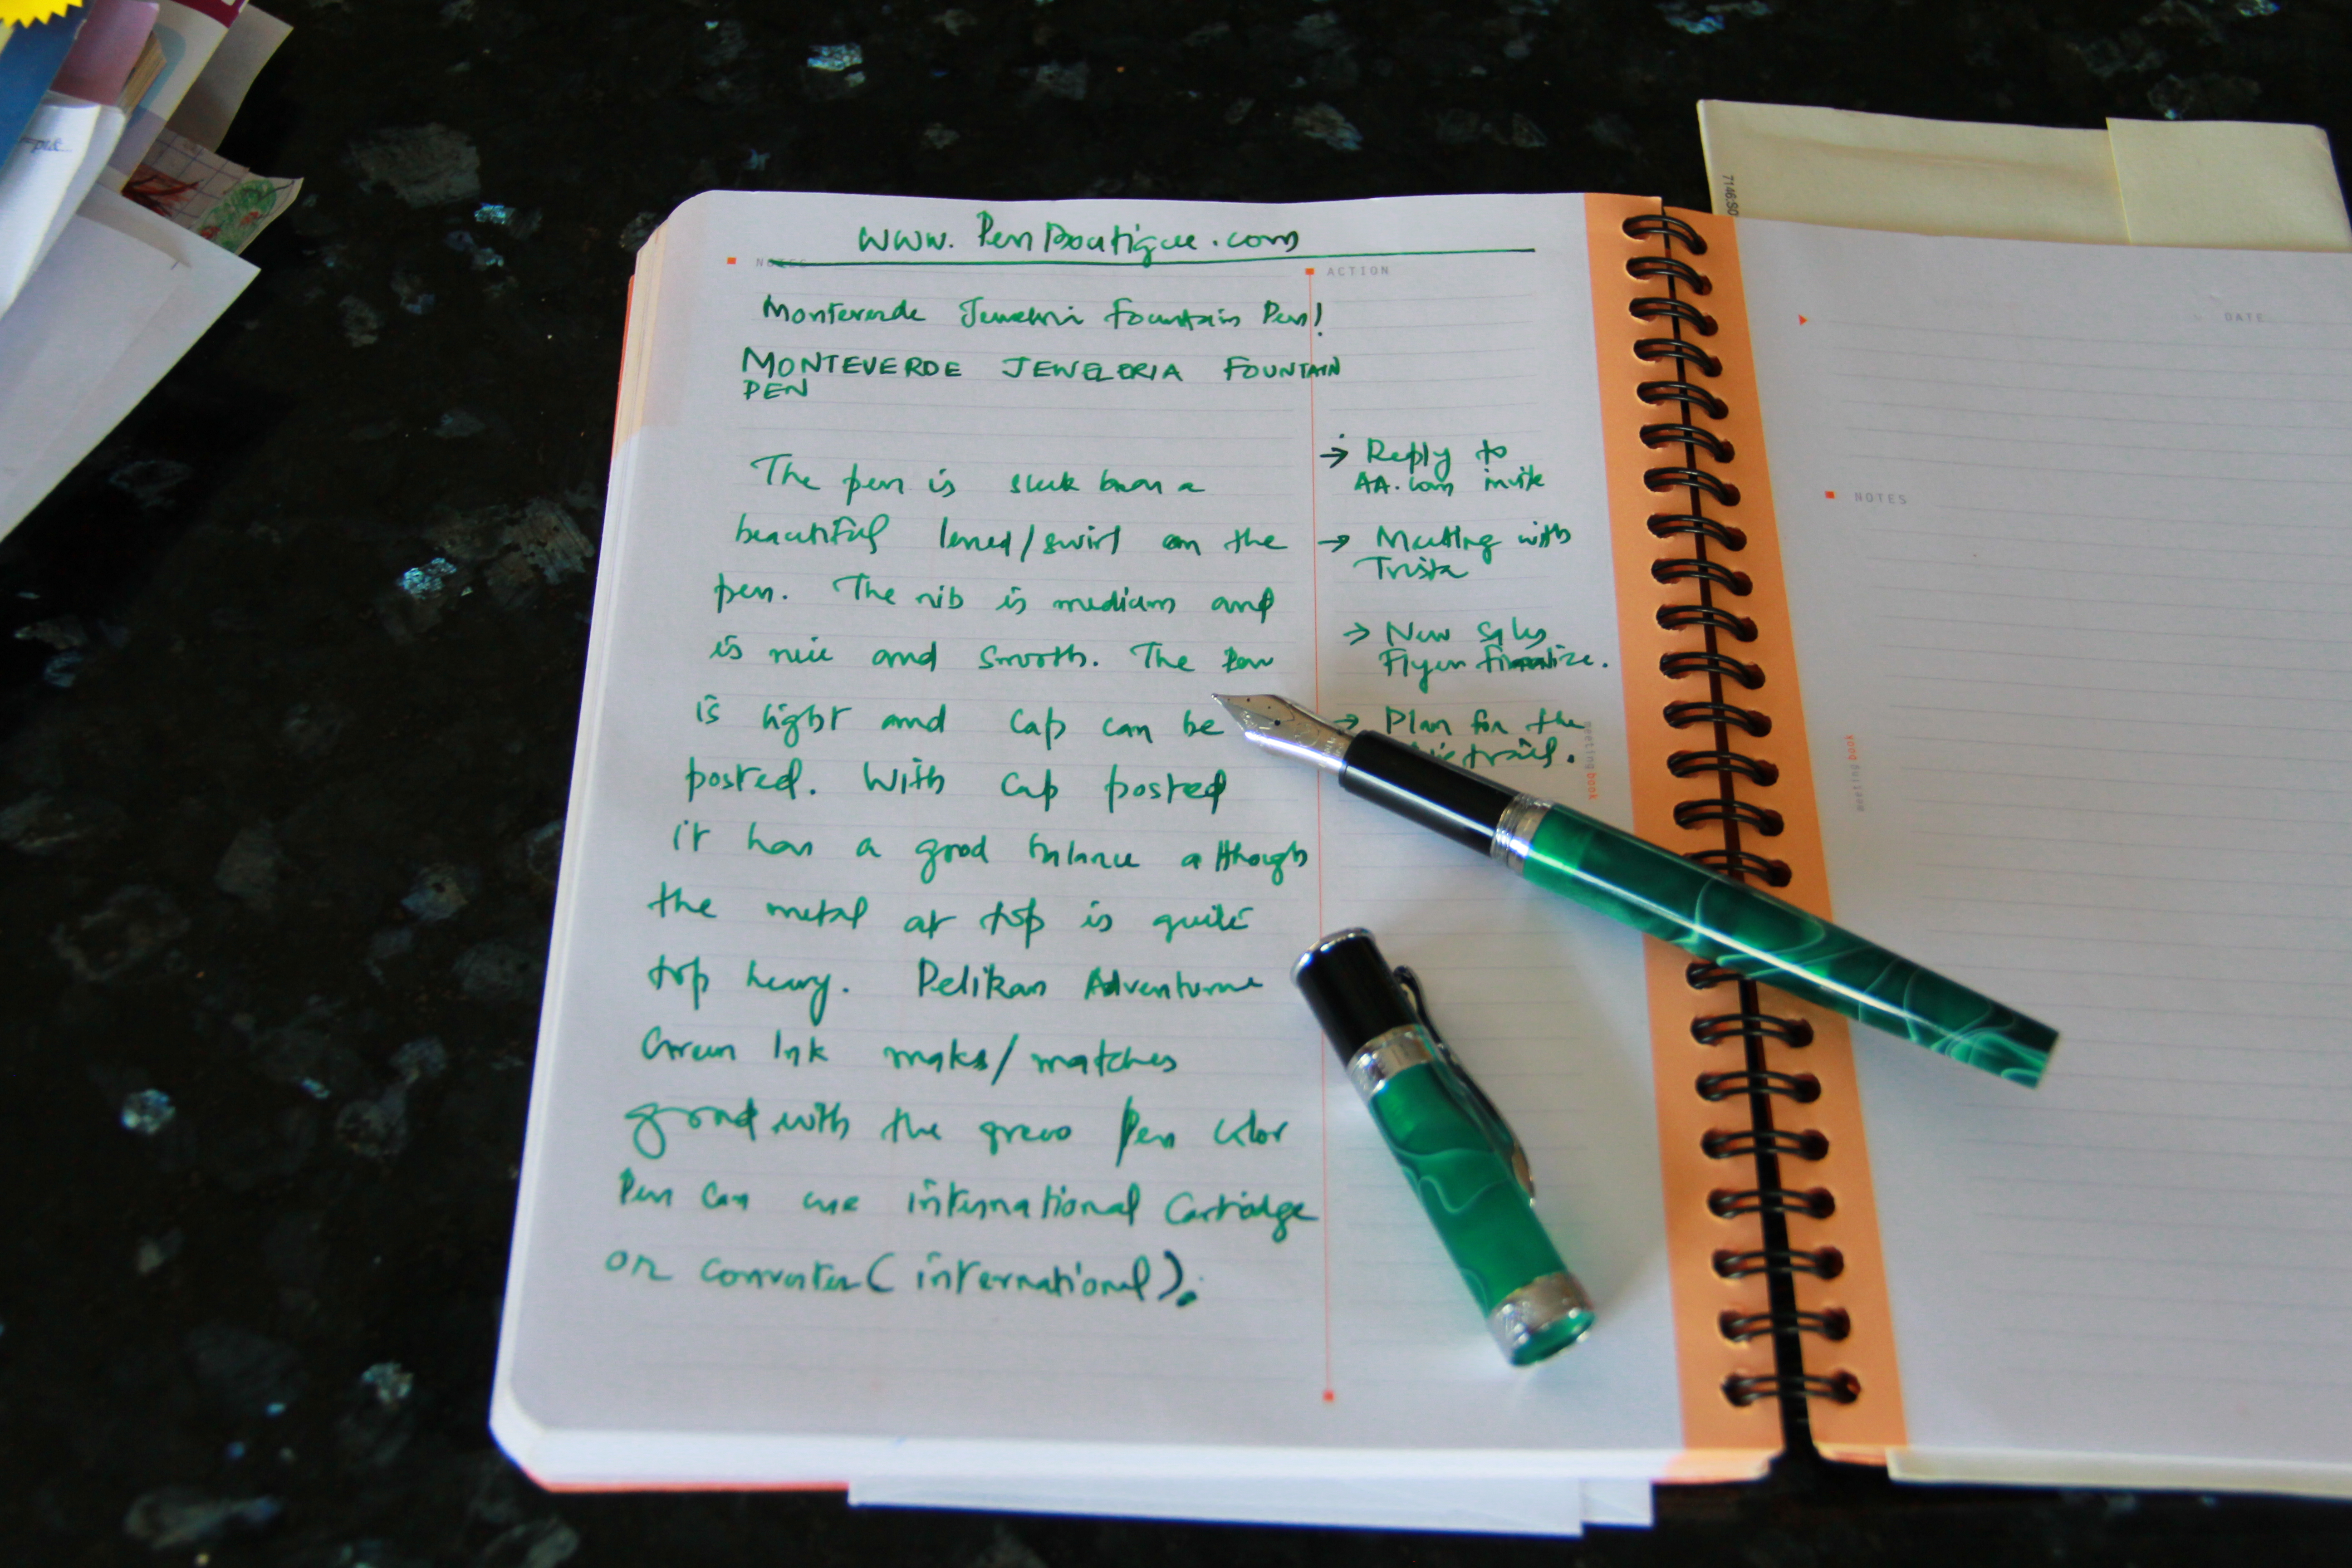 www.PenBoutique.com
NOTES
ACTION
Monteverde Jewelria Fountain Pen!
MONTEVERDE JEWELERIA FOUNTAIN
PEN
The pen is sleek has a
beautiful lined/swirl on the
pen. The nib is medium and
is nice and smooth. The Pen
is light and cap can be
posted. With cap posted
it has a good balance although
the metal at top is quite
top heavy. Pelikan Adventurine
Green Ink makes/matches
good with the green pen color
Pen can use international Cartridge
or converter (international).
→ Reply to
AA.com invite
→ Meeting with
Trista
→ New Sales
Flyer finalize.
→ Plan for the
trail.
meetingbook
DATE
NOTES
meetingbook